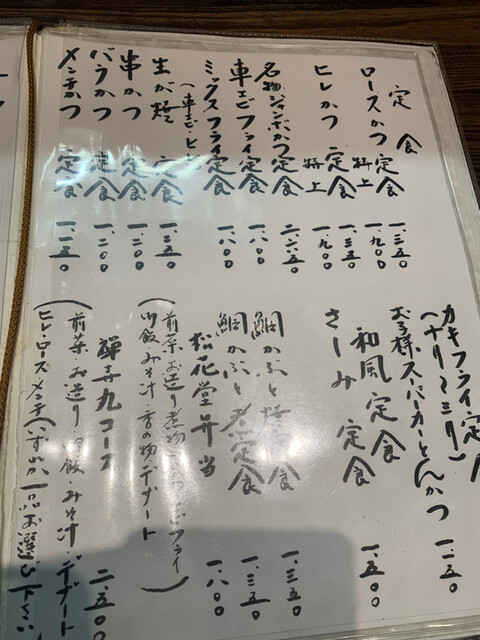 定食
ロースかつ定食 一、三五〇
特上 一、九〇〇
ヒレかつ定食 一、三五〇
特上 一、九〇〇
名物ジャンボかつ定食 二、二六五〇
車エビフライ定食 一、八〇〇
ミックスフライ定食 一、八〇〇
(車エビ・ヒレ)
生が焼定食 一、三五〇
串かつ定食 一、二〇〇
バラかつ定食 一、二〇〇
メンチかつ定食 一、一五〇
カキフライ定食
(十月〜三月)
お子様スーパーカーとんかつ 一、二五〇
和風定食
さしみ定食 一、五〇〇
鯛かぶと 定食 一、三五〇
鯛かぶと煮定食 一、三五〇
松花堂弁当 一、八〇〇
(前菜・お造り・煮物・ フライ
御飯・みそ汁・香の物・デザート)
コース 二、五〇〇
(前菜・お造り・御飯・みそ汁・デザート
ヒレ・ロース・メンチ(いずれか一品お選び下さい)